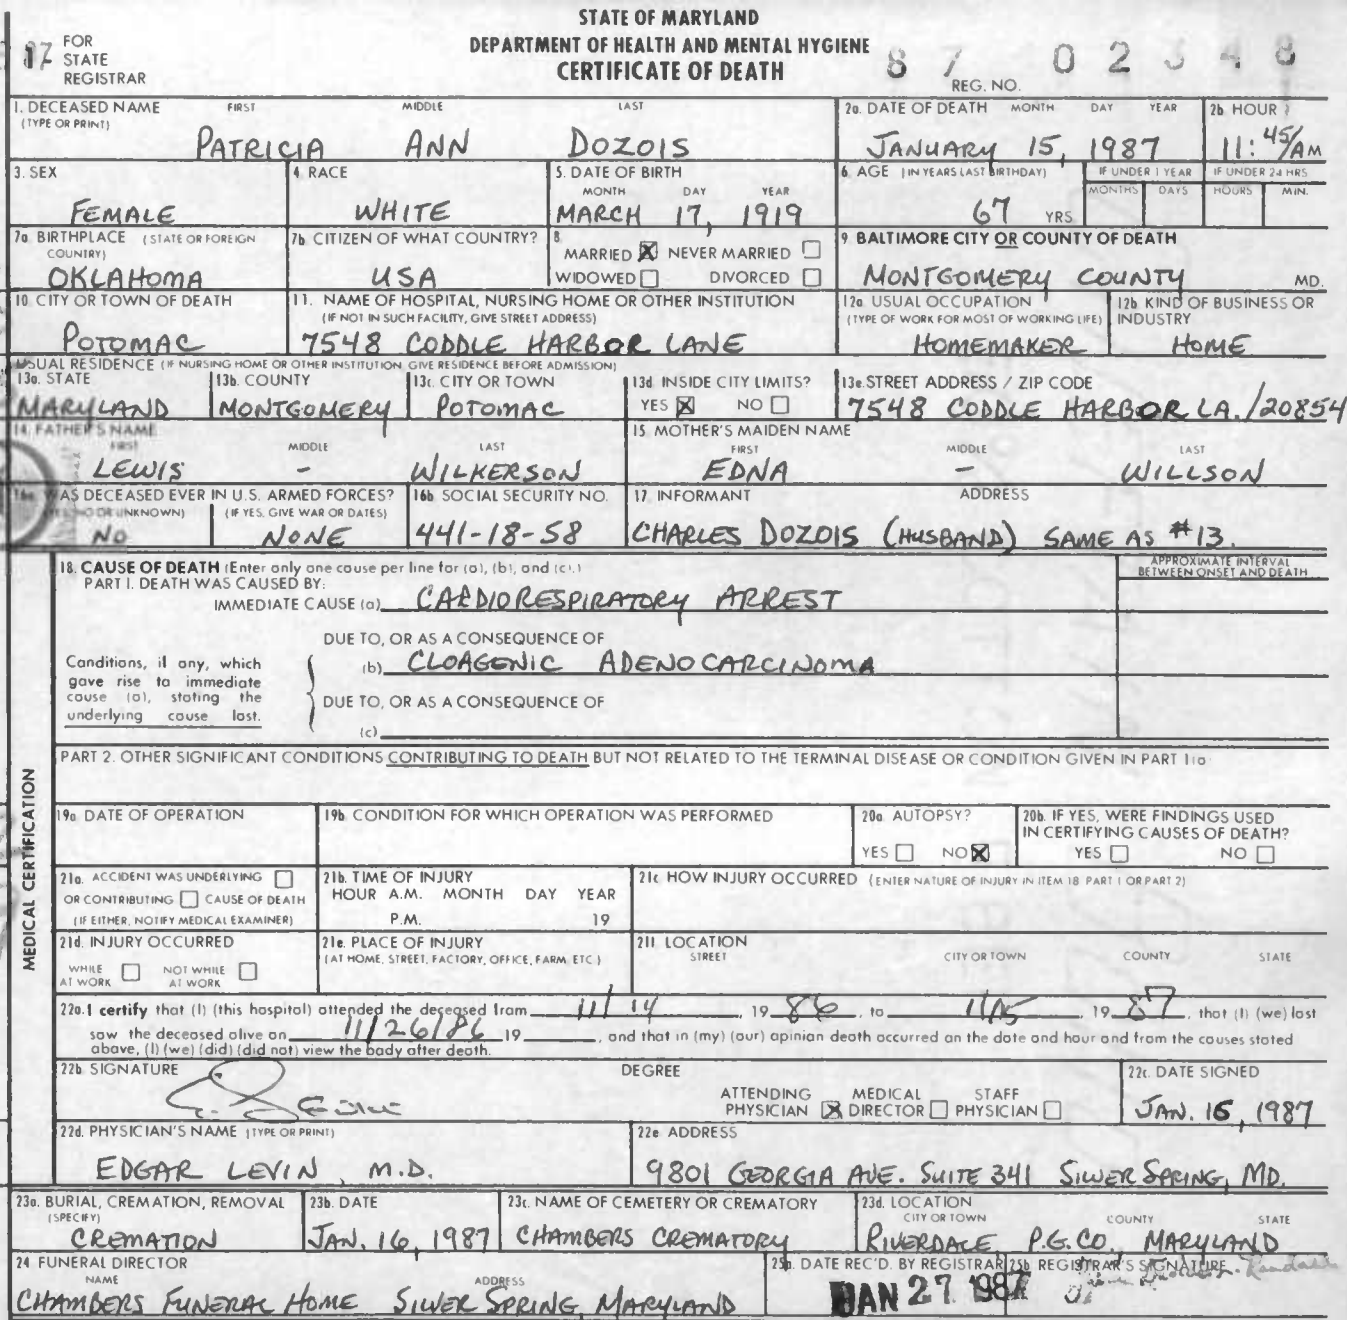 STATE OF MARYLAND
DEPARTMENT OF HEALTH AND MENTAL HYGIENE
CERTIFICATE OF DEATH
FOR STATE REGISTRAR
REG. NO.
1. DECEASED NAME (TYPE OR PRINT) FIRST MIDDLE LAST
PATRICIA ANN DOZOIS
2a. DATE OF DEATH MONTH DAY YEAR
JANUARY 15, 1987
2b. HOUR
11:45/AM
3. SEX
FEMALE
4. RACE
WHITE
5. DATE OF BIRTH MONTH DAY YEAR
MARCH 17, 1919
6. AGE (IN YEARS LAST BIRTHDAY)
67 YRS
IF UNDER 1 YEAR MONTHS DAYS
IF UNDER 24 HRS HOURS MIN.
7a. BIRTHPLACE (STATE OR FOREIGN COUNTRY)
OKLAHOMA
7b. CITIZEN OF WHAT COUNTRY?
USA
8. MARRIED X NEVER MARRIED
WIDOWED DIVORCED
9 BALTIMORE CITY OR COUNTY OF DEATH
MONTGOMERY COUNTY MD.
10. CITY OR TOWN OF DEATH
POTOMAC
11. NAME OF HOSPITAL, NURSING HOME OR OTHER INSTITUTION
(IF NOT IN SUCH FACILITY, GIVE STREET ADDRESS)
7548 CODDLE HARBOR LANE
12a. USUAL OCCUPATION
(TYPE OF WORK FOR MOST OF WORKING LIFE)
HOMEMAKER
12b. KIND OF BUSINESS OR INDUSTRY
HOME
USUAL RESIDENCE (IF NURSING HOME OR OTHER INSTITUTION GIVE RESIDENCE BEFORE ADMISSION)
13a. STATE
MARYLAND
13b. COUNTY
MONTGOMERY
13c. CITY OR TOWN
POTOMAC
13d. INSIDE CITY LIMITS?
YES X NO
13e. STREET ADDRESS / ZIP CODE
7548 CODDLE HARBOR LA./20854
14. FATHER'S NAME FIRST MIDDLE LAST
LEWIS - WILKERSON
15. MOTHER'S MAIDEN NAME FIRST MIDDLE LAST
EDNA - WILLSON
16a. WAS DECEASED EVER IN U.S. ARMED FORCES?
OR UNKNOWN) (IF YES, GIVE WAR OR DATES)
NO NONE
16b. SOCIAL SECURITY NO.
441-18-58
17. INFORMANT ADDRESS
CHARLES DOZOIS (HUSBAND) SAME AS #13.
MEDICAL CERTIFICATION
18. CAUSE OF DEATH (Enter only one cause per line for (a), (b), and (c).)
PART I. DEATH WAS CAUSED BY:
IMMEDIATE CAUSE (a) CARDIORESPIRATORY ARREST
APPROXIMATE INTERVAL BETWEEN ONSET AND DEATH
Conditions, if any, which gave rise to immediate cause (a), stating the underlying cause last.
DUE TO, OR AS A CONSEQUENCE OF
(b) CLOAGENIC ADENOCARCINOMA
DUE TO, OR AS A CONSEQUENCE OF
(c)
PART 2. OTHER SIGNIFICANT CONDITIONS CONTRIBUTING TO DEATH BUT NOT RELATED TO THE TERMINAL DISEASE OR CONDITION GIVEN IN PART 1(a)
19a. DATE OF OPERATION
19b. CONDITION FOR WHICH OPERATION WAS PERFORMED
20a. AUTOPSY?
YES NO X
20b. IF YES, WERE FINDINGS USED IN CERTIFYING CAUSES OF DEATH?
YES NO
21a. ACCIDENT WAS UNDERLYING
OR CONTRIBUTING CAUSE OF DEATH
(IF EITHER, NOTIFY MEDICAL EXAMINER)
21b. TIME OF INJURY
HOUR A.M. MONTH DAY YEAR
P.M. 19
21c. HOW INJURY OCCURRED (ENTER NATURE OF INJURY IN ITEM 18 PART 1 OR PART 2)
21d. INJURY OCCURRED
WHILE AT WORK NOT WHILE AT WORK
21e. PLACE OF INJURY
(AT HOME, STREET, FACTORY, OFFICE, FARM, ETC.)
21f. LOCATION
STREET CITY OR TOWN COUNTY STATE
22a. I certify that (I) (this hospital) attended the deceased from 11/14, 1986, to 1/15, 1987, that (I) (we) last
saw the deceased alive on 11/26/86 19 , and that in (my) (our) opinion death occurred on the date and hour and from the causes stated
above, (I) (we) (did) (did not) view the body after death.
22b. SIGNATURE DEGREE
ATTENDING PHYSICIAN X MEDICAL DIRECTOR STAFF PHYSICIAN
22c. DATE SIGNED
JAN. 15, 1987
22d. PHYSICIAN'S NAME (TYPE OR PRINT)
EDGAR LEVIN, M.D.
22e. ADDRESS
9801 GEORGIA AVE. SUITE 341 SILVER SPRING, MD.
23a. BURIAL, CREMATION, REMOVAL (SPECIFY)
CREMATION
23b. DATE
JAN. 16, 1987
23c. NAME OF CEMETERY OR CREMATORY
CHAMBERS CREMATORY
23d. LOCATION CITY OR TOWN COUNTY STATE
RIVERDALE P.G.CO. MARYLAND
24 FUNERAL DIRECTOR
NAME ADDRESS
CHAMBERS FUNERAL HOME SILVER SPRING, MARYLAND
25a. DATE REC'D. BY REGISTRAR
JAN 27 1987
25b. REGISTRAR'S SIGNATURE